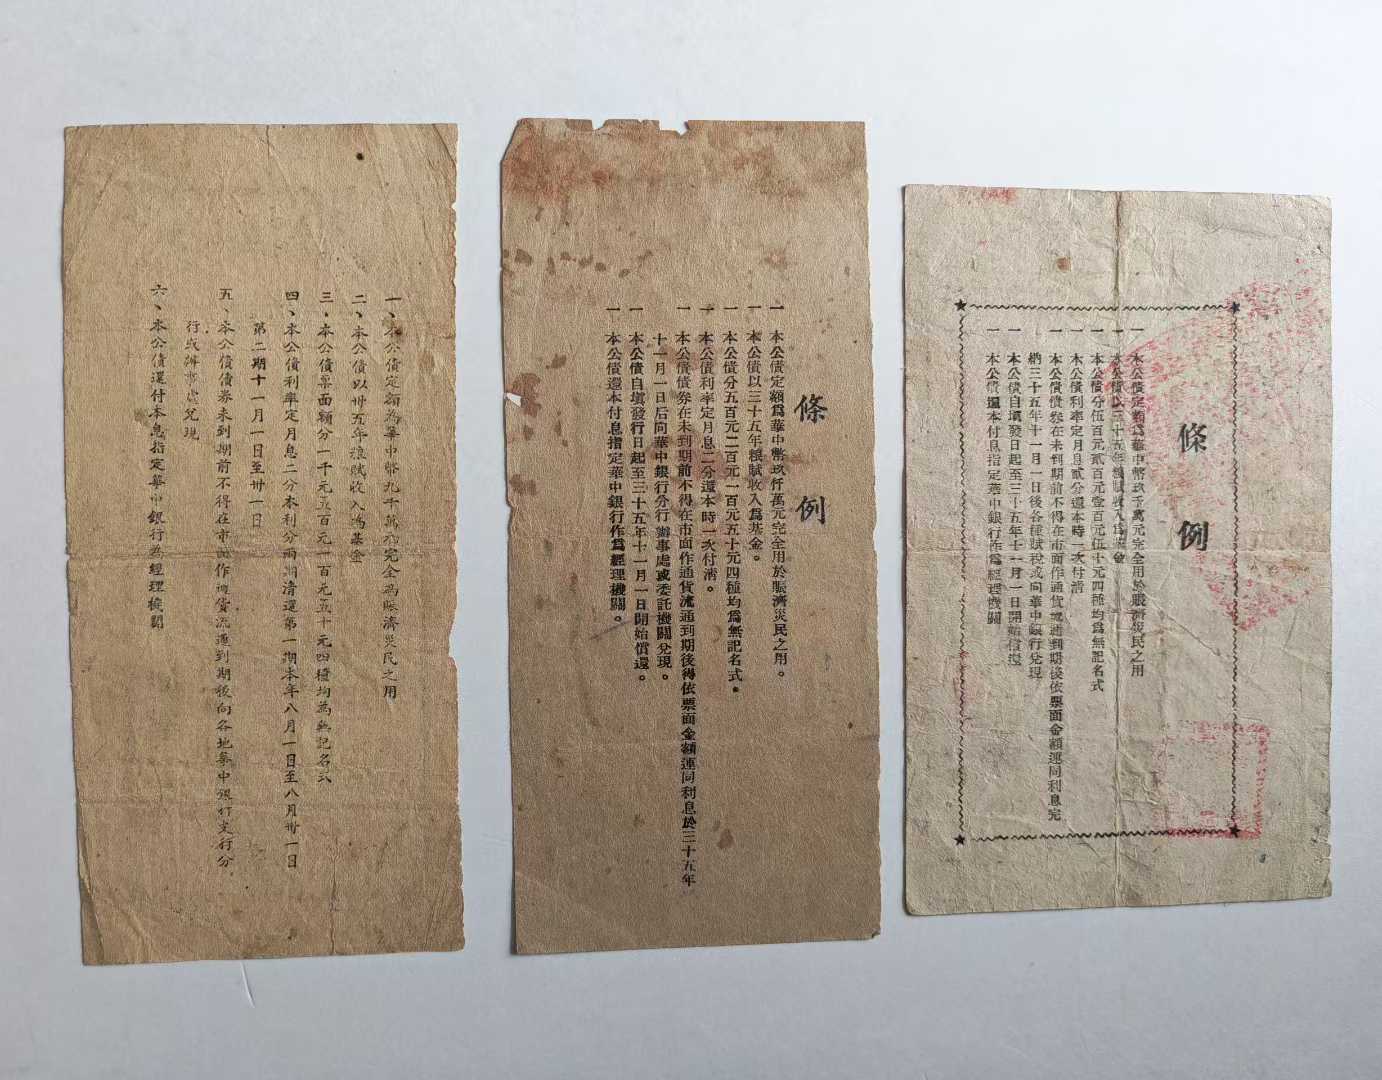 一、本公債定額為華中幣九千萬元完全為賑濟災民之用
二、本公債以卅五年粮賦收入為基金
三、本公債票面額分一千元五百元一百元五十元四種均為無記名式
四、本公債利率定月息二分本利分兩期清還第一期本年八月一日至八月卅一日
第二期十一月一日至卅一日
五、本公債債券未到期前不得在市面作通貨流通到期後向各地華中銀行支行分
行或辦事處兌現
六、本公債還付本息指定華中銀行為經理機關
條例
一 本公債定額爲華中幣玖仟萬元完全用於賑濟災民之用。
一 本公債以三十五年粮賦收入爲基金。
一 本公債分五百元二百元一百元五十元四種均爲無記名式。
一 本公債利率定月息二分還本時一次付清。
一 本公債債券在未到期前不得在市面作通貨流通到期後得依票面金額連同利息於三十五年
十一月一日后向華中銀行分行辦事處或委託機關兌現。
一 本公債自塡發行日起至三十五年十一月一日開始償還。
一 本公債還本付息指定華中銀行作爲經理機關。
條例
一 本公債定額爲華中幣玖千萬元完全用於賑濟災民之用
一 本公債以三十五年粮賦收入爲基金
一 本公債分伍百元貳百元壹百元伍十元四種均爲無記名式
一 本公債利率定月息貳分還本時一次付清
一 本公債債券在未到期前不得在市面作通貨流通到期後依票面金額連同利息完
納三十五年十一月一日後各種賦稅或向華中銀行兌現
一 本公債自塡發日起至三十五年十一月一日開始償還
一 本公債還本付息指定華中銀行作爲經理機關